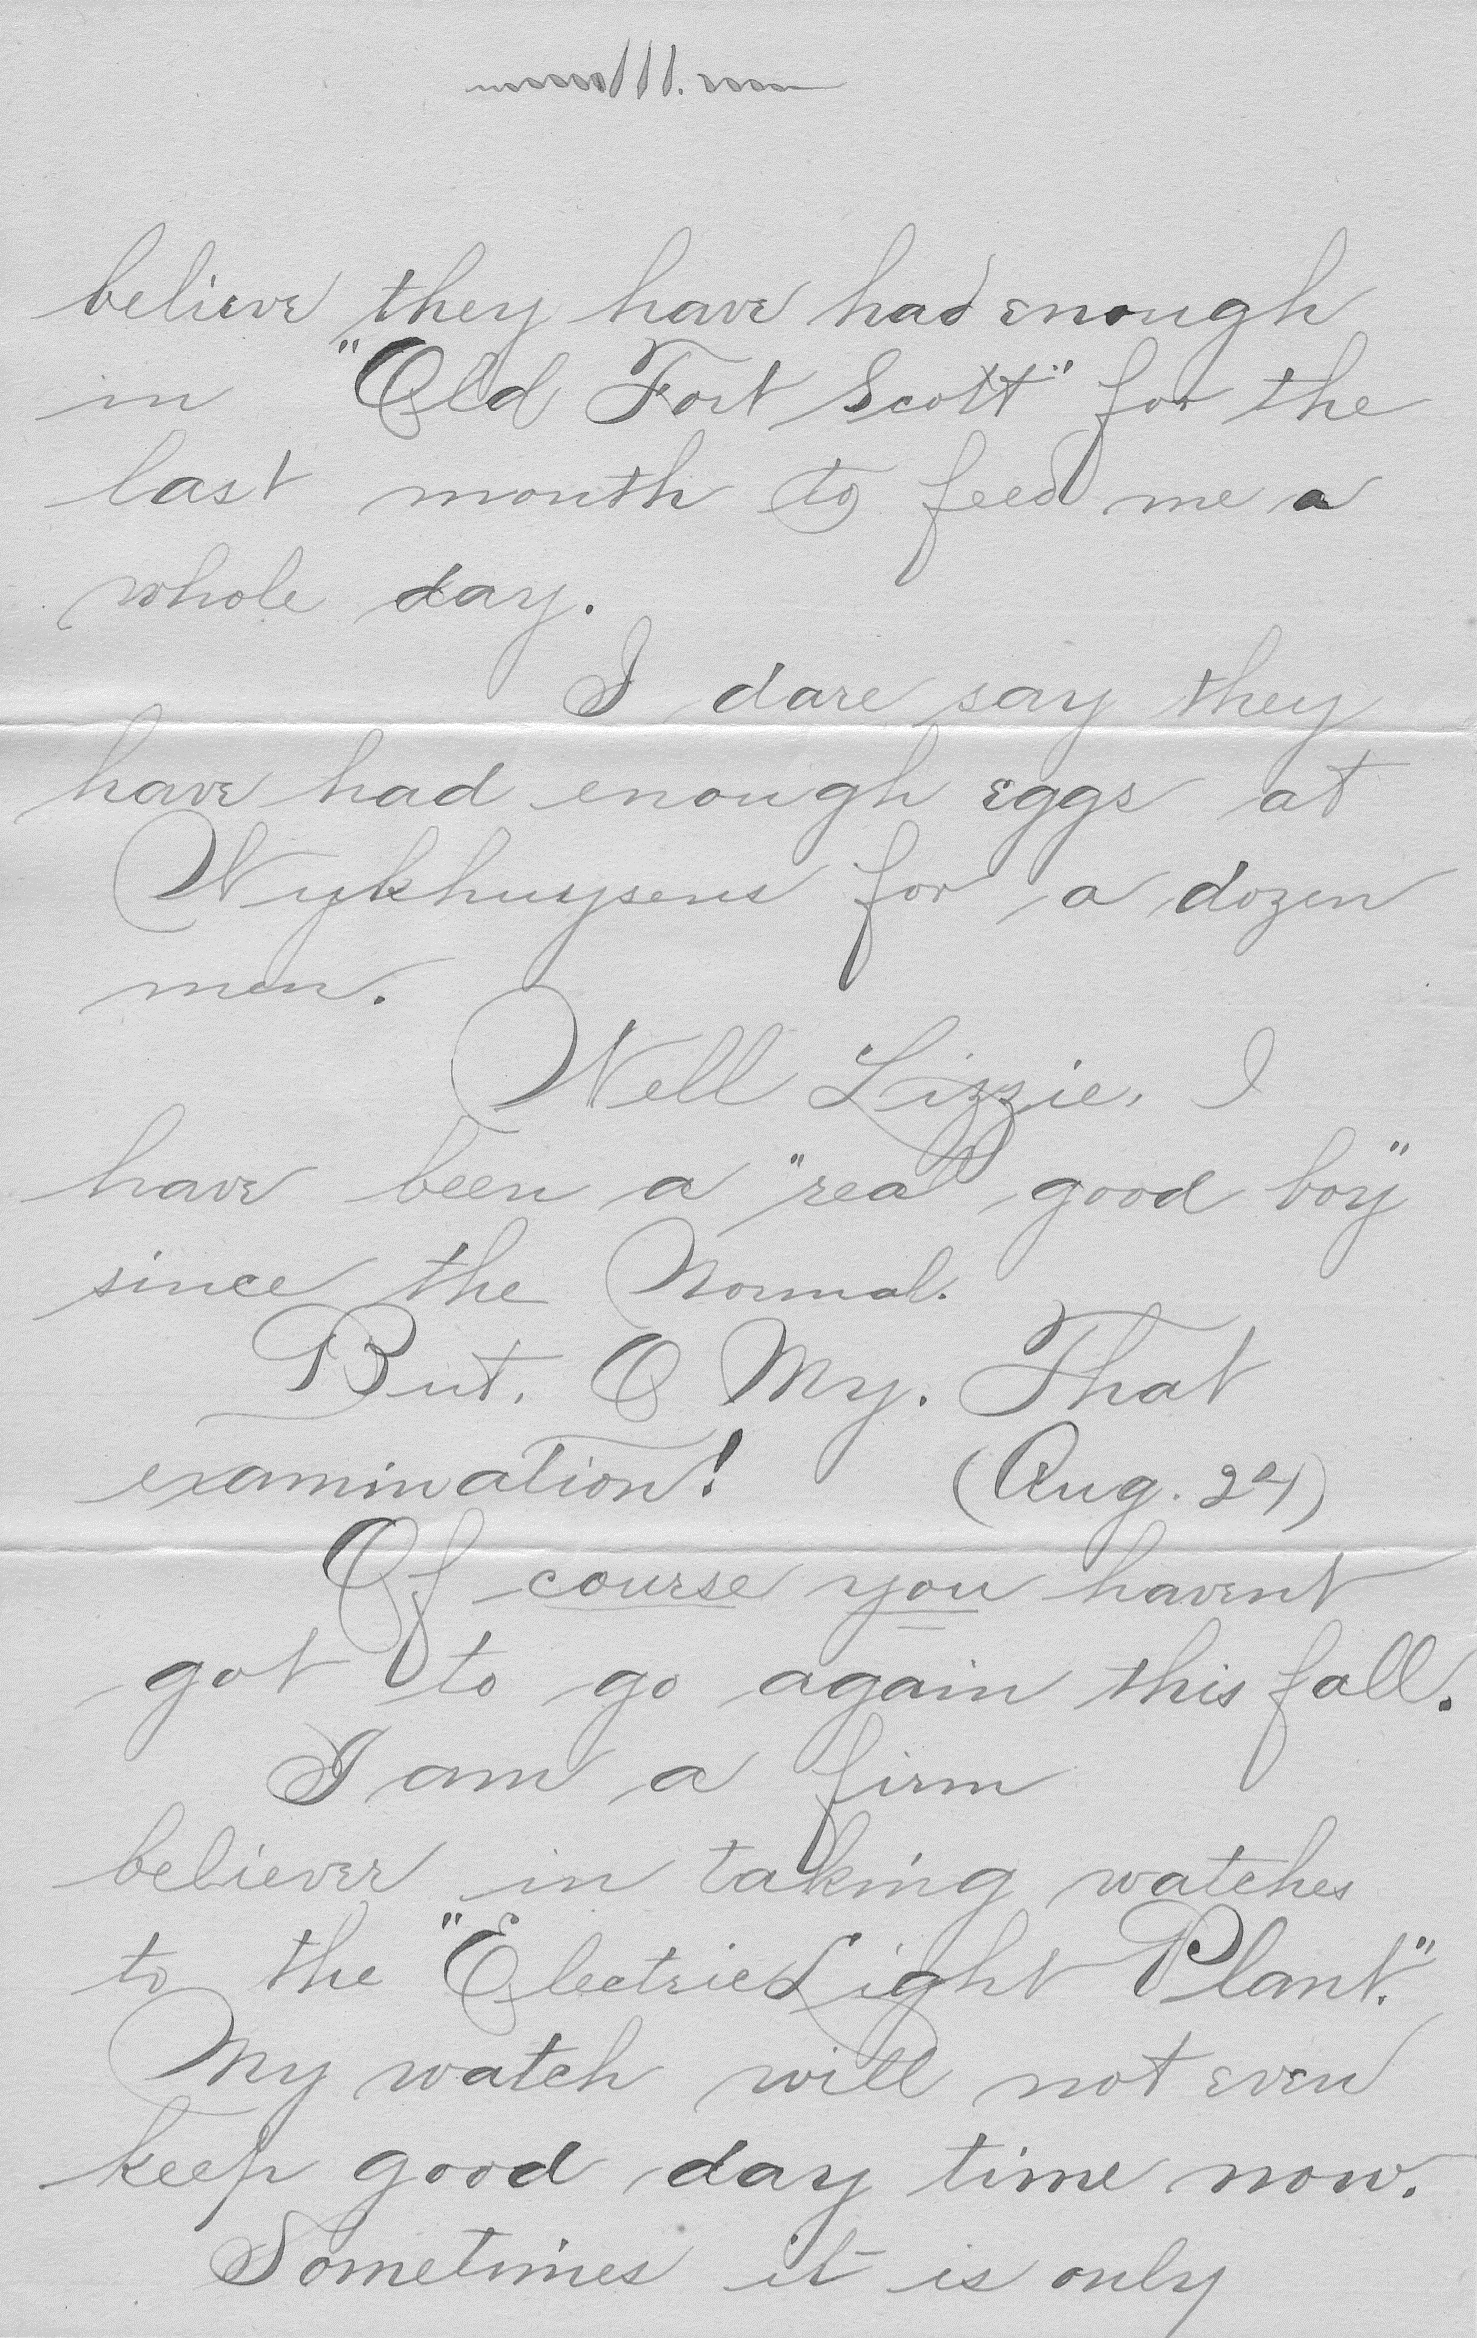 believe they have had enough
in "Old Fort Scott" for the
last month to feed me a
whole day.
I dare say they
have had enough eggs at
Wykhuysens for a dozen
men.
Well Lizzie, I
have been a "real good boy"
since the Normal.
But, O My. That
examination! (Aug. 24)
Of course you havent
got to go again this fall.
I am a firm
believer in taking watches
to the "Electric Light Plant."
My watch will not even
keep good day time now.
Sometimes it is only